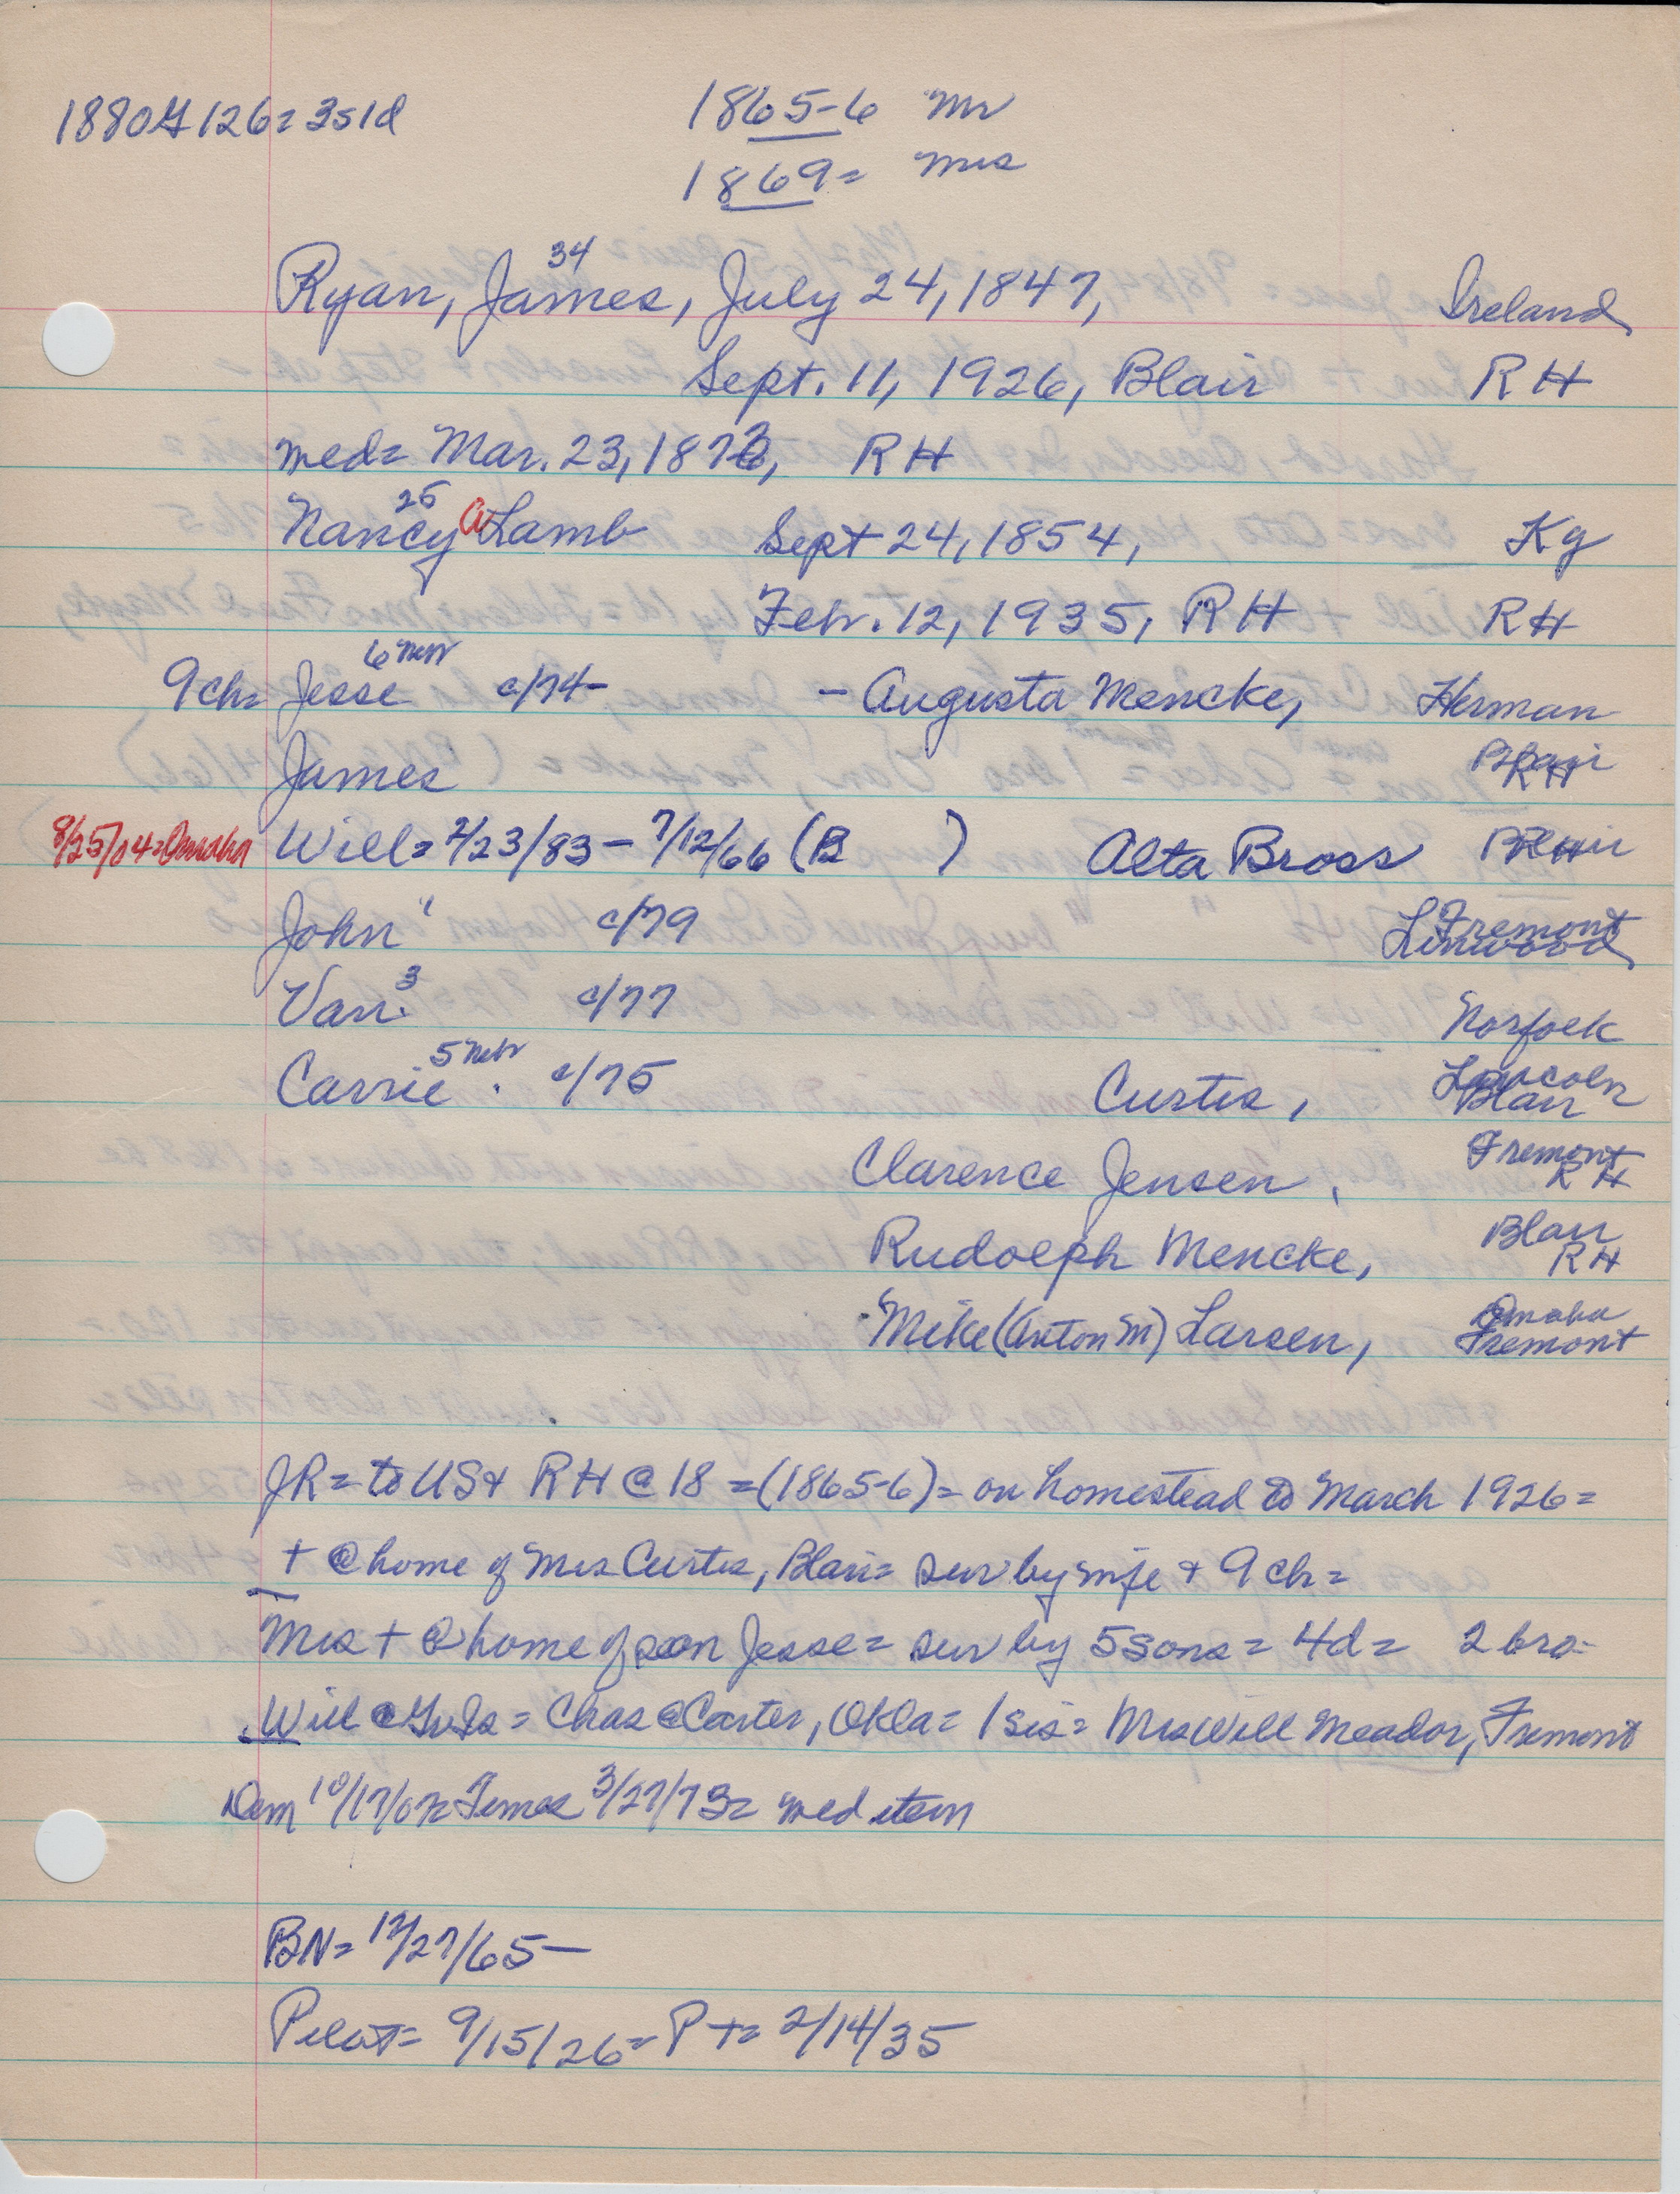 1880 126= 3s1d
1865-6 Mr
1869= Mrs
34
Ryan, James, July 24, 1847, Ireland
Sept. 11, 1926, Blair RH
med= Mar. 23, 1873, RH
25
Nancy A Lamb Sept 24, 1854, Ky
Feb. 12, 1935, RH RH
6 Neb
9ch= Jesse c/74 - Augusta Mencke, Herman
James Blair RH
8/25/04=Omaha Will= 2/23/83 - 7/12/66 (B ) Alta Bross Blair RH
John 1 c/79 Fremont Linwood
Van 3 c/77 Norfolk
5 Neb
Carrie c/75 Curtis, Lincoln Blair
Clarence Jensen, Fremont RH
Rudolph Mencke, Blair RH
Mike (Anton M) Larsen, Omaha Fremont
JR= to US & RH @ 18 =(1865-6)= on homestead to March 1926=
+ @ home of Mrs Curtis, Blair= sur by wife + 9 ch=
Mrs + @ home of son Jesse= sur by 5 sons= 4d= 2 bro=
Will @ = Chas @ Carter, Okla= 1 sis= Mrs Will Meador, Fremont
Dem 10/17/07= Times 3/27/73= med item
BN= 12/27/65-
Pilot= 9/15/26= P += 2/14/35